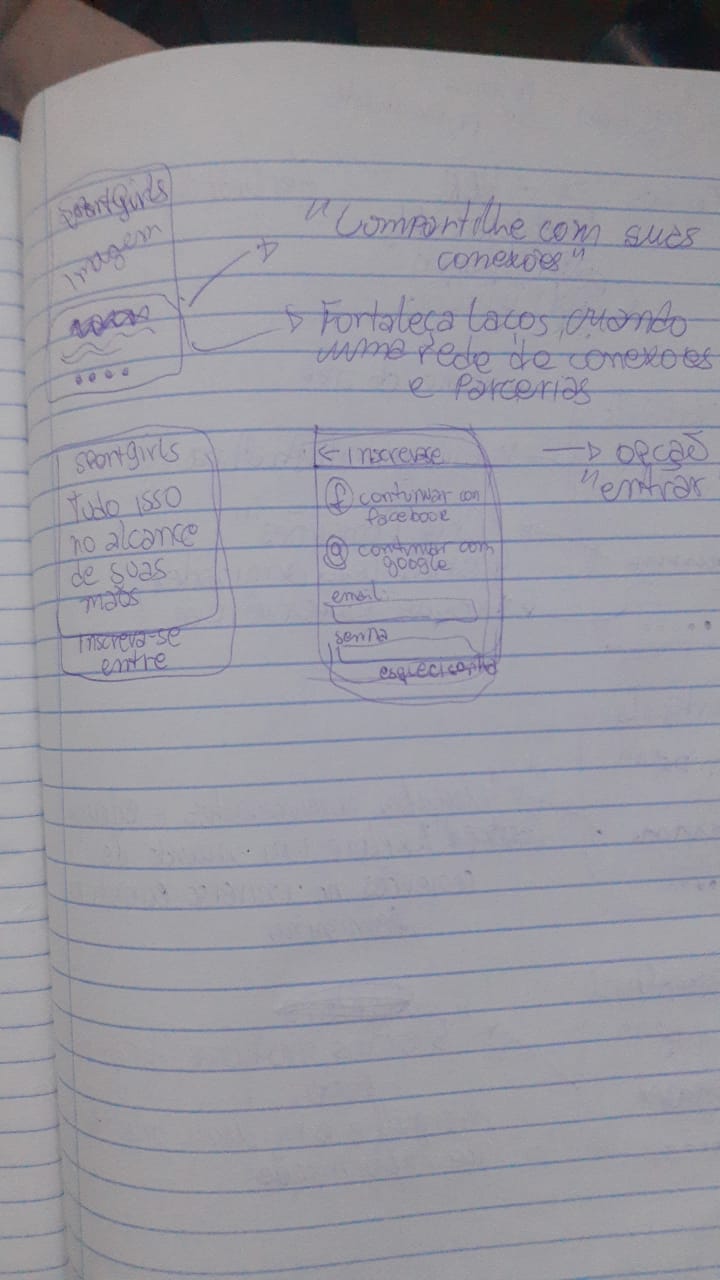 sportgirls
imagem
"Compartilhe com suas
conexões"
Fortaleça laços, criando
uma rede de conexões
e parcerias
sportgirls
tudo isso
no alcance
de suas
mãos
inscreva-se
entre
← inscrevase
f continuar con
facebook
g continuar com
google
email:
senha
esqueci senha
→ opçaõ
"entrar"